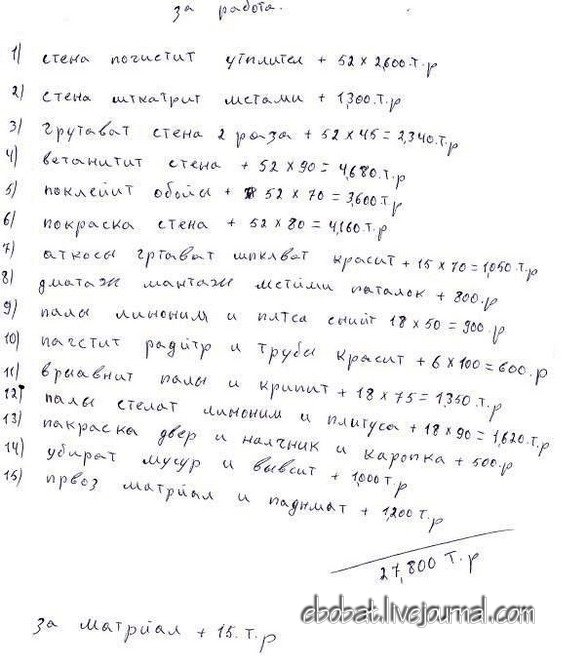 за работа.
1) стена почистит утплител + 52 х 2,600.т.р
2) стена шткатрит мстами + 1,300.т.р
3) грутават стена 2 раза + 52 х 45 = 2,340.т.р
4) ветанитит стена + 52 х 90 = 4,680.т.р
5) поклейит обойы + 52 х 70 = 3,600т.р
6) покраска стена + 52 х 80 = 4,160.т.р
7) аткосы гртават шпклват красит + 15 х 70 = 1,050.т.р
8) дматаж мантаж мстйми паталок + 800.р
9) палы линоним и плтса снийт 18 х 50 = 900.р
10) пагстит радйтр и трубы красит + 6 х 100 = 600.р
11) врыавнит палы и крипит + 18 х 75 = 1,350.т.р
12) палы стелат линоним и плитуса + 18 х 90 = 1,620.т.р
13) пакраска двер и налчник и каропка + 500.р
14) убират мусур и вывсит + 1,000т.р
15) првоз матрйал и паднмат + 1,200т.р
27,800 т.р
за матрйал + 15.т.р
ebobat.livejournal.com